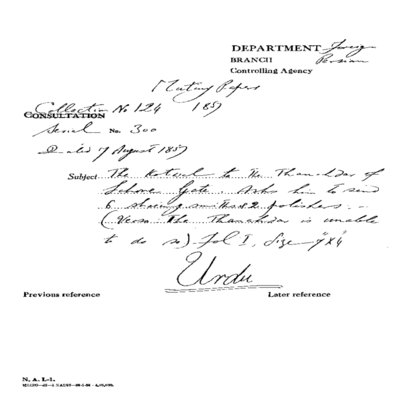 DEPARTMENT Foreign
BRANCH Persian
Controlling Agency
Mutiny Papers
Collection No 124 1857
CONSULTATION
Serial No. 300
Dated 7 August 1857
Subject The Kotwal to the Thanahdar of
Lahore Gate. Asks him to send
6 shaving smiths & 2 polishers.
(Verso The Thanahdar is unable
to do so) fol I, Size
Urdu
Previous reference Later reference
N. A. I.-1.